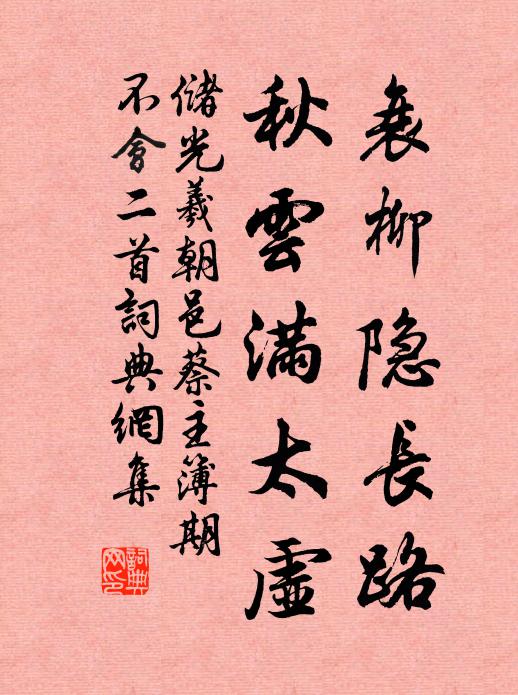 衰柳隐長路
秋雲滿太虛
儲光羲朝邑蔡主簿期
不會二首詞典網集
詞典网印